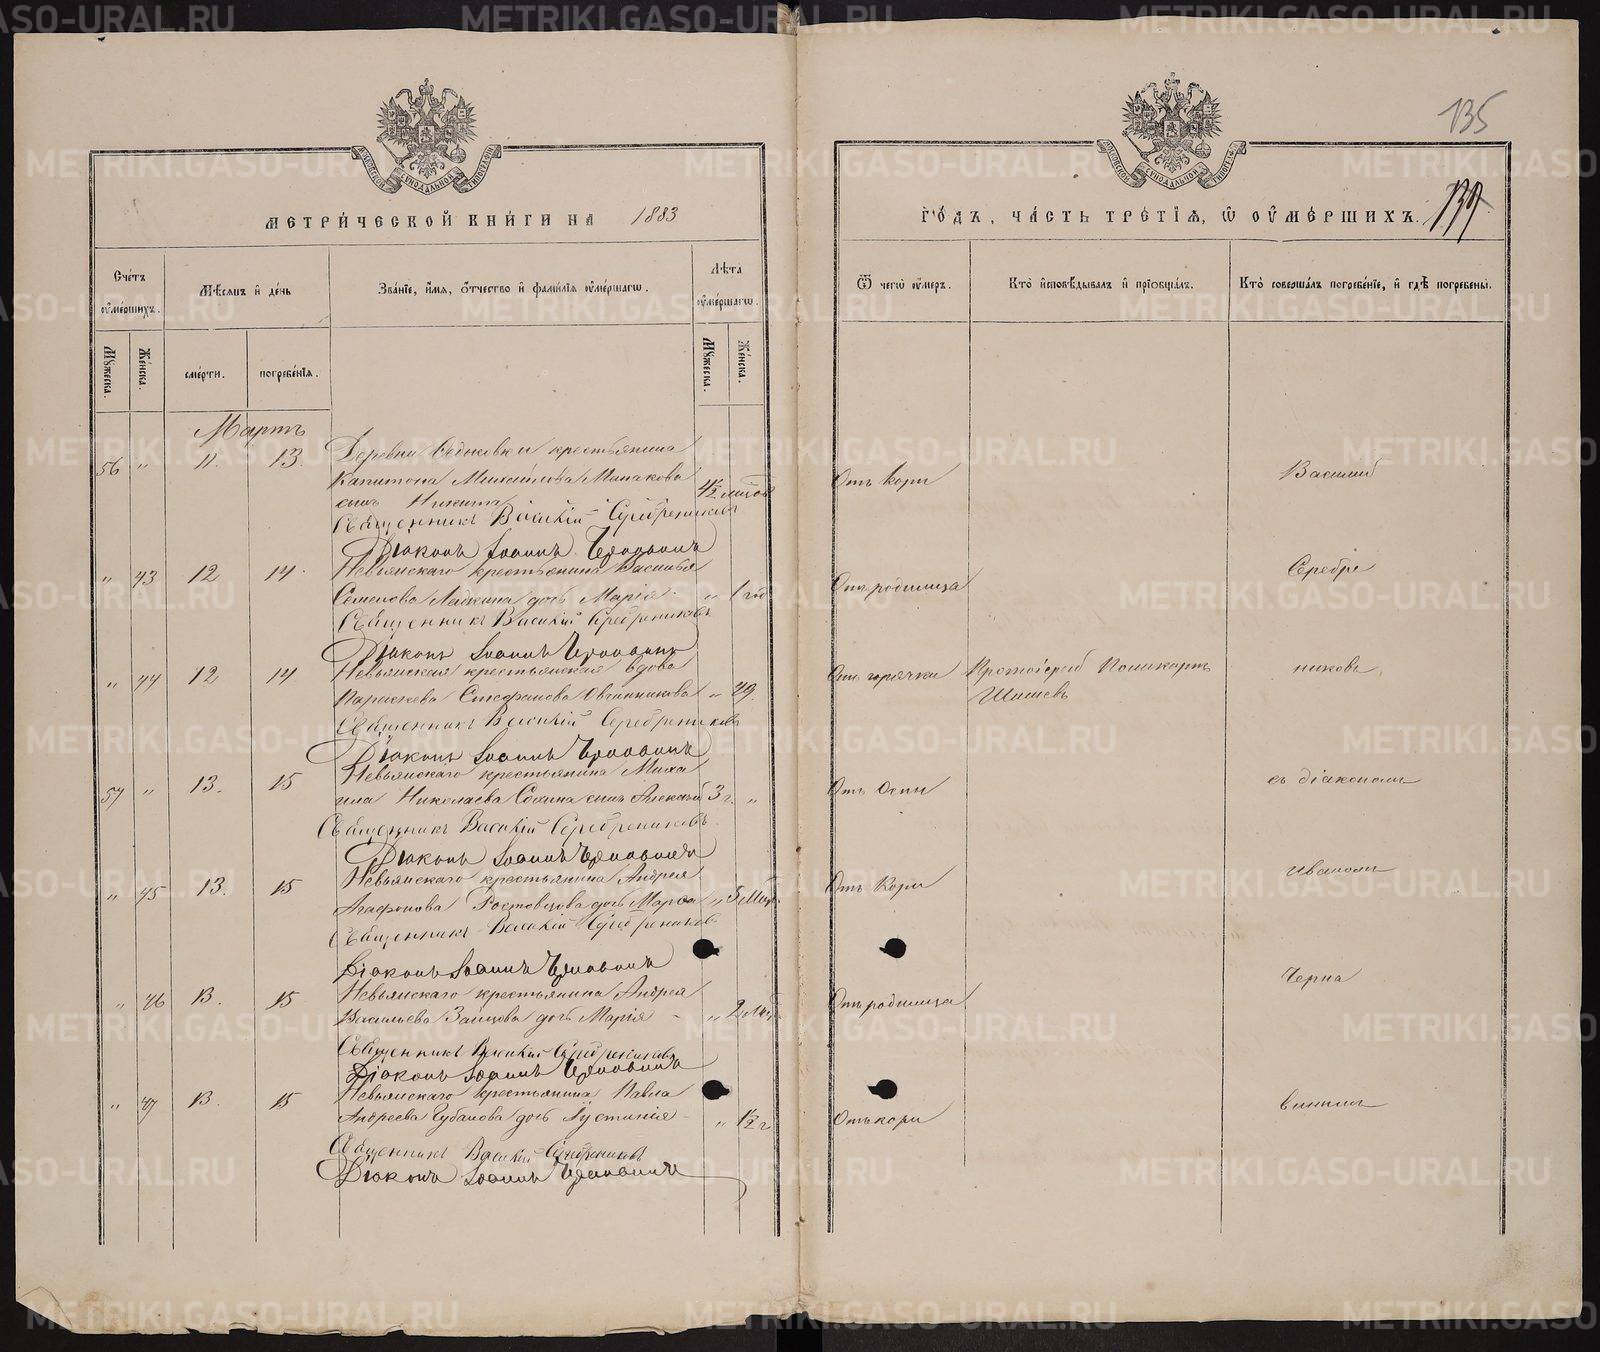 МЕТРИ́ЧЕСКОЙ КНИ́ГИ НА 1883
Сче́тъ ᲂу҆ме́ршихъ.
Мѣ́сяцъ и҆ де́нь
Зва́нїе, и҆́мя, ѻ҆́тчество и҆ фами́лїя ᲂу҆ме́ршагѡ.
Лѣ́та ᲂу҆ме́ршагѡ.
Мꙋ́жеска.
Же́нска.
сме́рти.
погребе́нїя.
Мꙋ́жеска.
Же́нска.
Мартъ
56 " 11. 13.
Деревни крестьянина
Капитона Михайлова Минакова
сынъ Никита
4½ мѣсяц
Священникъ Василій Серебрениковъ
Діаконъ Іоаннъ Черновинъ
" 43 12 14.
Невьянскаго крестьянина Василья
Семенова Ладкина дочь Марія " 1 год
Священникъ Василій Серебрениковъ
Діаконъ Іоаннъ Черновинъ
" 44 12 14
Невьянская крестьянская вдова
Параскева Стефанова Овчинникова " 29.
Священникъ Василій Серебрениковъ
Діаконъ Іоаннъ Черновинъ
57 " 13. 15
Невьянскаго крестьянина Миха
ила Николаева сынъ Алексѣй 3 г. "
Священникъ Василій Серебрениковъ
Діаконъ Іоаннъ Черновинъ
" 45 13. 15
Невьянскаго крестьянина Андрея
Агафонова Ростовцова дочь Марѳа "
Священникъ Василій Серебрениковъ
Діаконъ Іоаннъ Черновинъ
" 46 13. 15
Невьянскаго крестьянина Андрея
Васильева Зайцова дочь Марія - " 2
Священникъ Василій Серебрениковъ
Діаконъ Іоаннъ Черновинъ
" 47 13. 15
Невьянскаго крестьянина Павла
Андреева Губанова дочь Іустинія - " 1½ г
Священникъ Василій Серебрениковъ
Діаконъ Іоаннъ Черновинъ
135
ГО́ДЪ, ЧА́СТЬ ТРЕ́ТЇЯ, Ѡ҆ ОУ҆МЕ́РШИХЪ.
Ѿ чегѡ̀ ᲂу҆́меръ.
Кто̀ и҆сповѣ́дывалъ и҆ прїѡбща́лъ.
Кто̀ соверша́лъ погребе́нїе, и҆ гдѣ̀ погребены̀.
Отъ кори
Василій
Отъ родимца
Серебре
Отъ горячки
Протоіерей Поликарпъ
Шишевъ
никовъ
Отъ Оспы
съ діакономъ
Отъ Кори
Иваномъ
Отъ родимца
Черна
Отъ кори
винымъ
METRIKI.GASO-URAL.RU